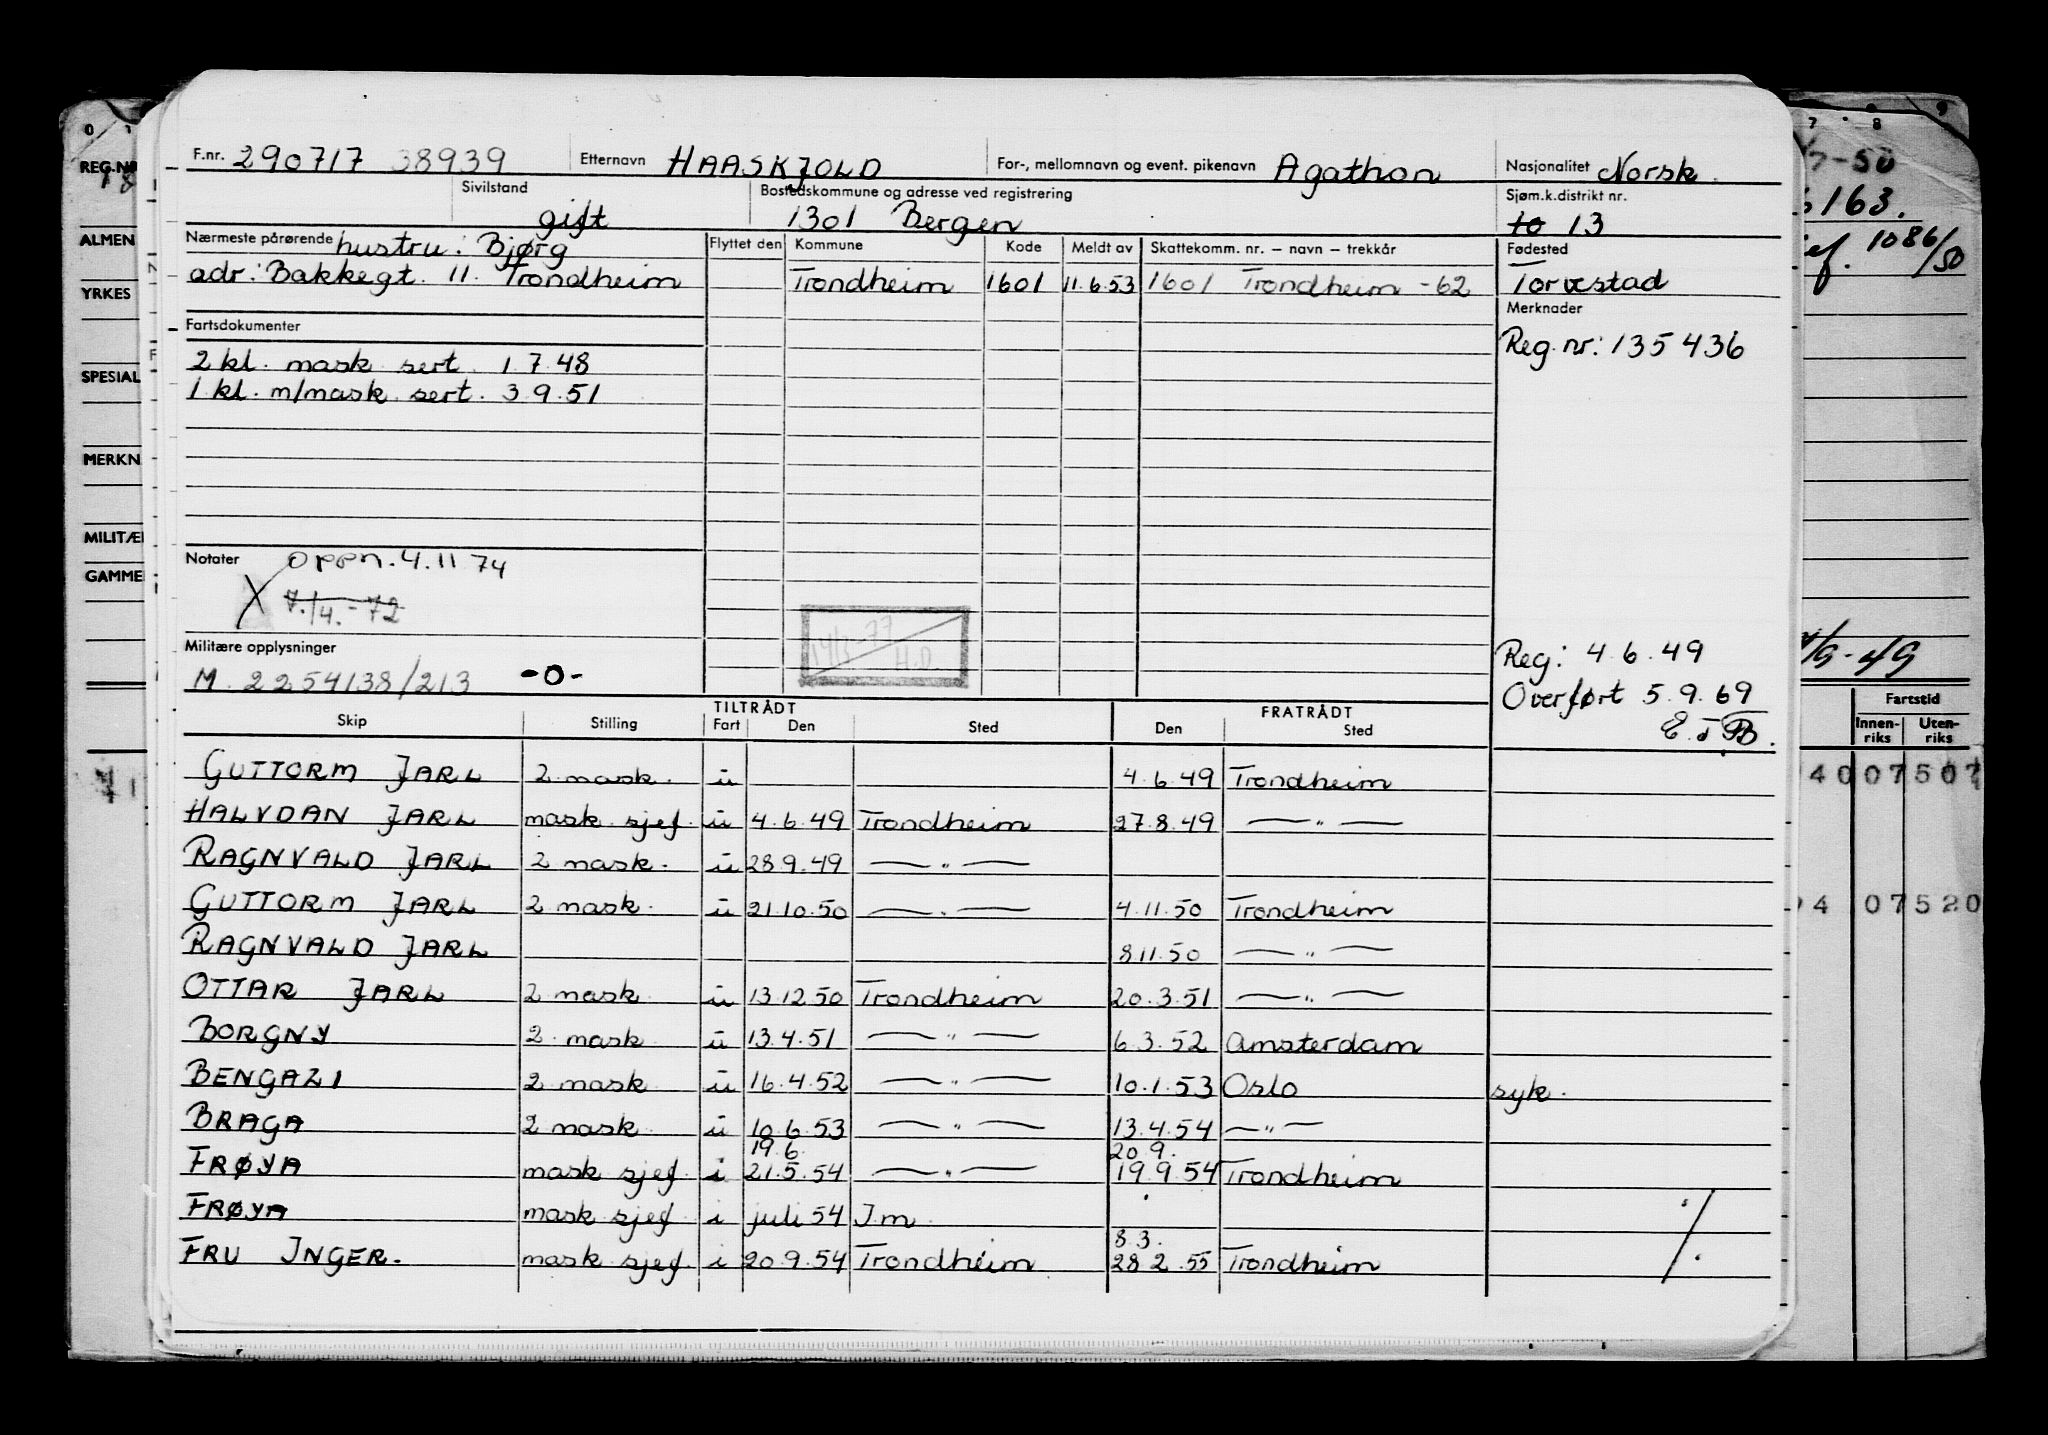 F.nr. 290717 38939 Etternavn HAASKJOLD For-, mellomnavn og event. pikenavn Agathon Nasjonalitet Norsk.
Sivilstand gift Bostedskommune og adresse ved registrering 1301 Bergen Sjøm.k.distrikt nr. 10 13
Nærmeste pårørende hustru: Bjørg Flyttet den Kommune Kode Meldt av Skattekomm. nr. – navn – trekkår Fødested
adr: Bakkegt. 11. Trondheim Trondheim 1601 11.6.53 1601 Trondheim -62 Torvestad
Fartsdokumenter Merknader
Reg. nr: 135436
2 kl. mask sert. 1.7.48
1 kl. m/mask sert. 3.9.51
Notater oppn. 4.11.74
X 7./4.-72
14/1-77 H.D.
Militære opplysninger
M. 2254138/213 -0-
Reg: 4.6.49
Overført 5.9.69
TILTRÅDT FRATRÅDT
Skip Stilling Fart Den Sted Den Sted
GUTTORM JARL 2 mask. u 4.6.49 Trondheim
HALVDAN JARL mask sjef. u 4.6.49 Trondheim 27.8.49 — " —
RAGNVALD JARL 2 mask. u 28.9.49 — " —
GUTTORM JARL 2 mask. u 21.10.50 — " — 4.11.50 Trondheim
RAGNVALD JARL 8.11.50 — " —
OTTAR JARL 2 mask u 13.12.50 Trondheim 20.3.51 — " —
BORGNY 2 mask u 13.4.51 — " — 6.3.52 Amsterdam
BENGAZI 2 mask u 16.4.52 — " — 10.1.53 Oslo syk.
BRAGA 2 mask u 10.6.53 — " — 13.4.54 — " —
19.6. 20.9.
FRØYA mask sjef. i 21.5.54 — " — 19.9.54 Trondheim
FRØYA mask sjef. i juli 54 Im
8.3.
FRU INGER. mask sjef. i 20.9.54 Trondheim 28.2.55 Trondheim
REG.NR
ALMEN
YRKES
SPESIAL
MERKN
MILITÆ
GAMME
7 8 9
-50
163.
ef. 1086/50
/9-49
Fartstid
Innen-riks Uten-riks
40 07507
94 07520